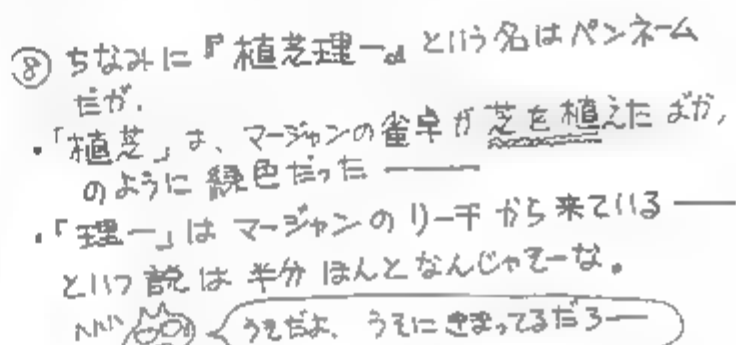 ⑧ ちなみに『植芝理一』という名はペンネーム
だが、
・「植芝」は、マージャンの雀卓が芝を植えたばか、
のように緑色だった――
・「理一」はマージャンのリーチから来ている――
という説は半分ほんとなんじゃそーな。
へへへ うそだよ、うそにきまってるだろー